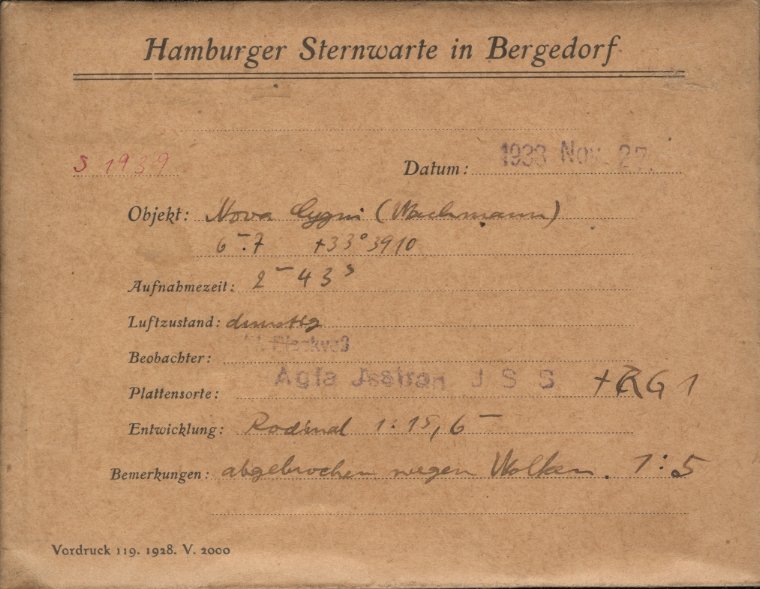 Hamburger Sternwarte in Bergedorf
S 1939 Datum: 1933 Nov. 27.
Objekt: Nova Cygni (Wachmann)
6 – 7 +33° 3910
Aufnahmezeit: 2 – 43 s
Luftzustand: dunstig
Beobachter:
Plattensorte: Agfa JSS +RG 1
Entwicklung: Rodinal 1:15, 6 –
Bemerkungen: abgebrochen wegen Wolken. 1:5
Vordruck 119. 1928. V. 2000